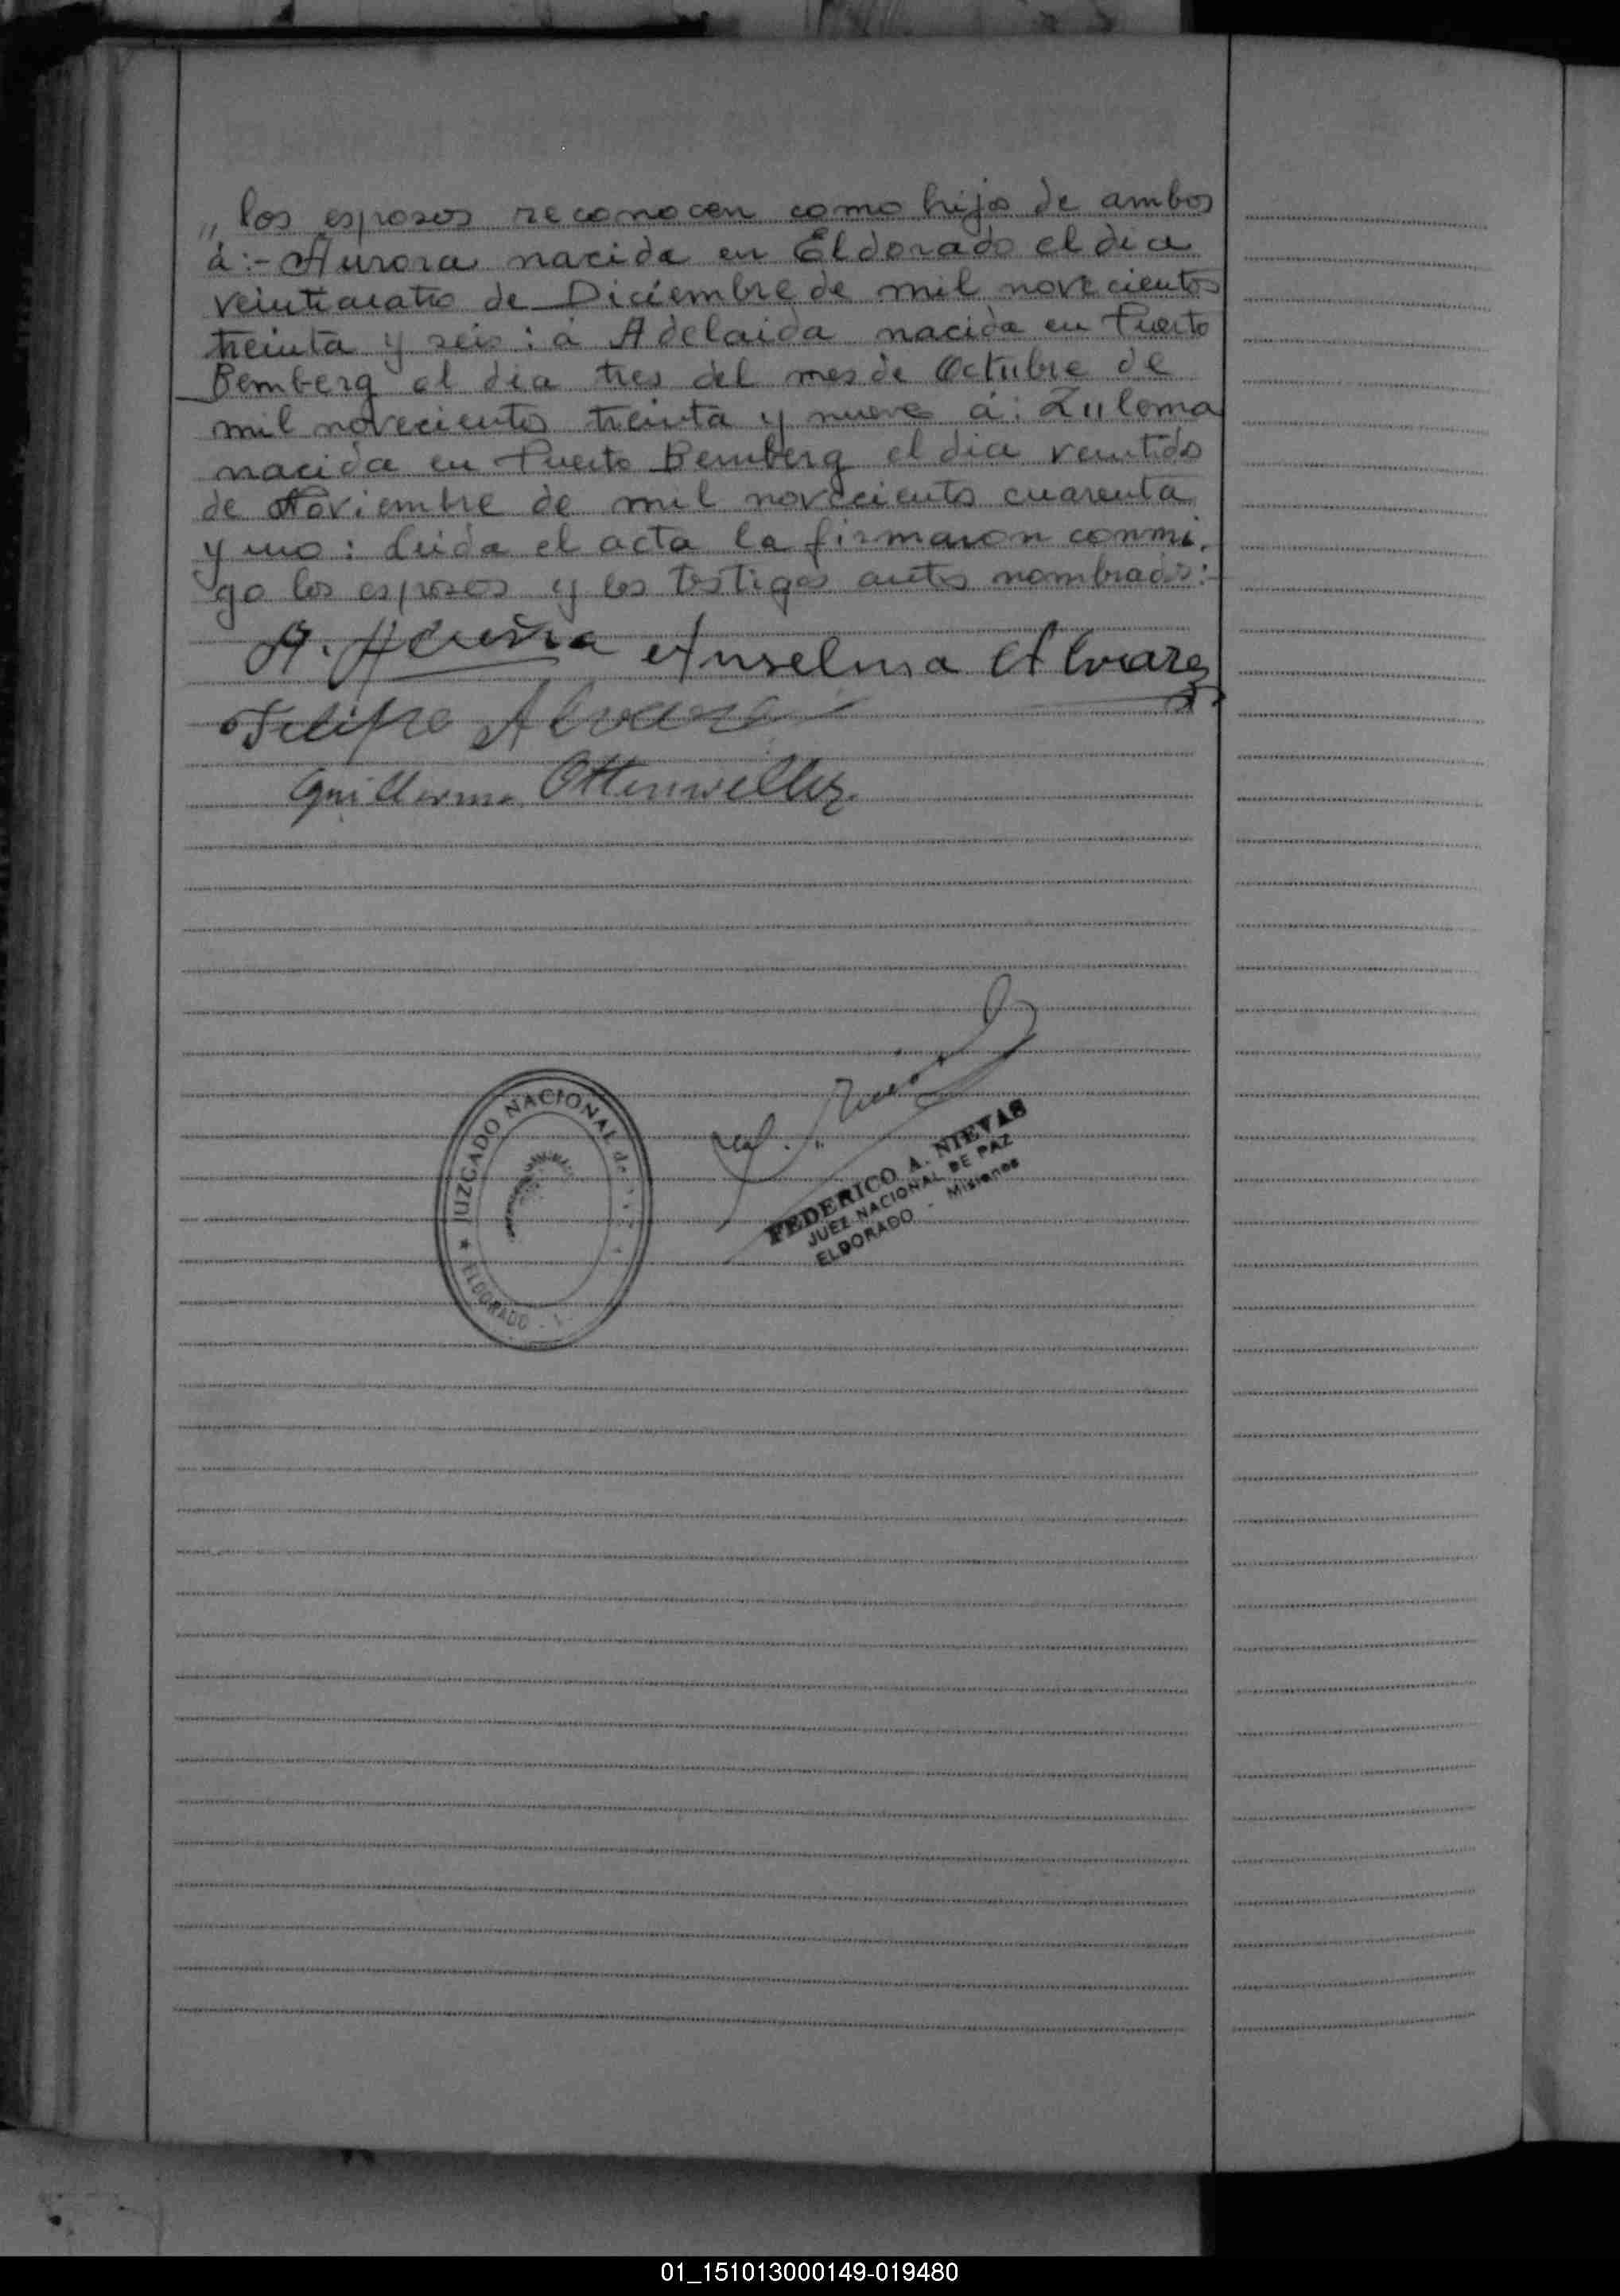 „ los esposos reconocen como hijos de ambos
á:- Aurora nacida en Eldorado el dia
veinticuatro de Diciembre de mil novecientos
treinta y seis: á Adelaida nacida en Puerto
Bemberg el dia tres del mes de Octubre de
mil novecientos treinta y nueve á: Zulema
nacida en Puerto Bemberg el dia veintidos
de Noviembre de mil novecientos cuarenta
y uno: Leida el acta la firmaron conmi-
go los esposos y los testigos antes nombrados:-
A. Acuña Anselma Alvarez
Felipe Alvarez
Guillermo Ottenweller
JUZGADO NACIONAL de
ELDORADO
FEDERICO A. NIEVAS
JUEZ NACIONAL DE PAZ
ELDORADO - Misiones
01_151013000149-019480